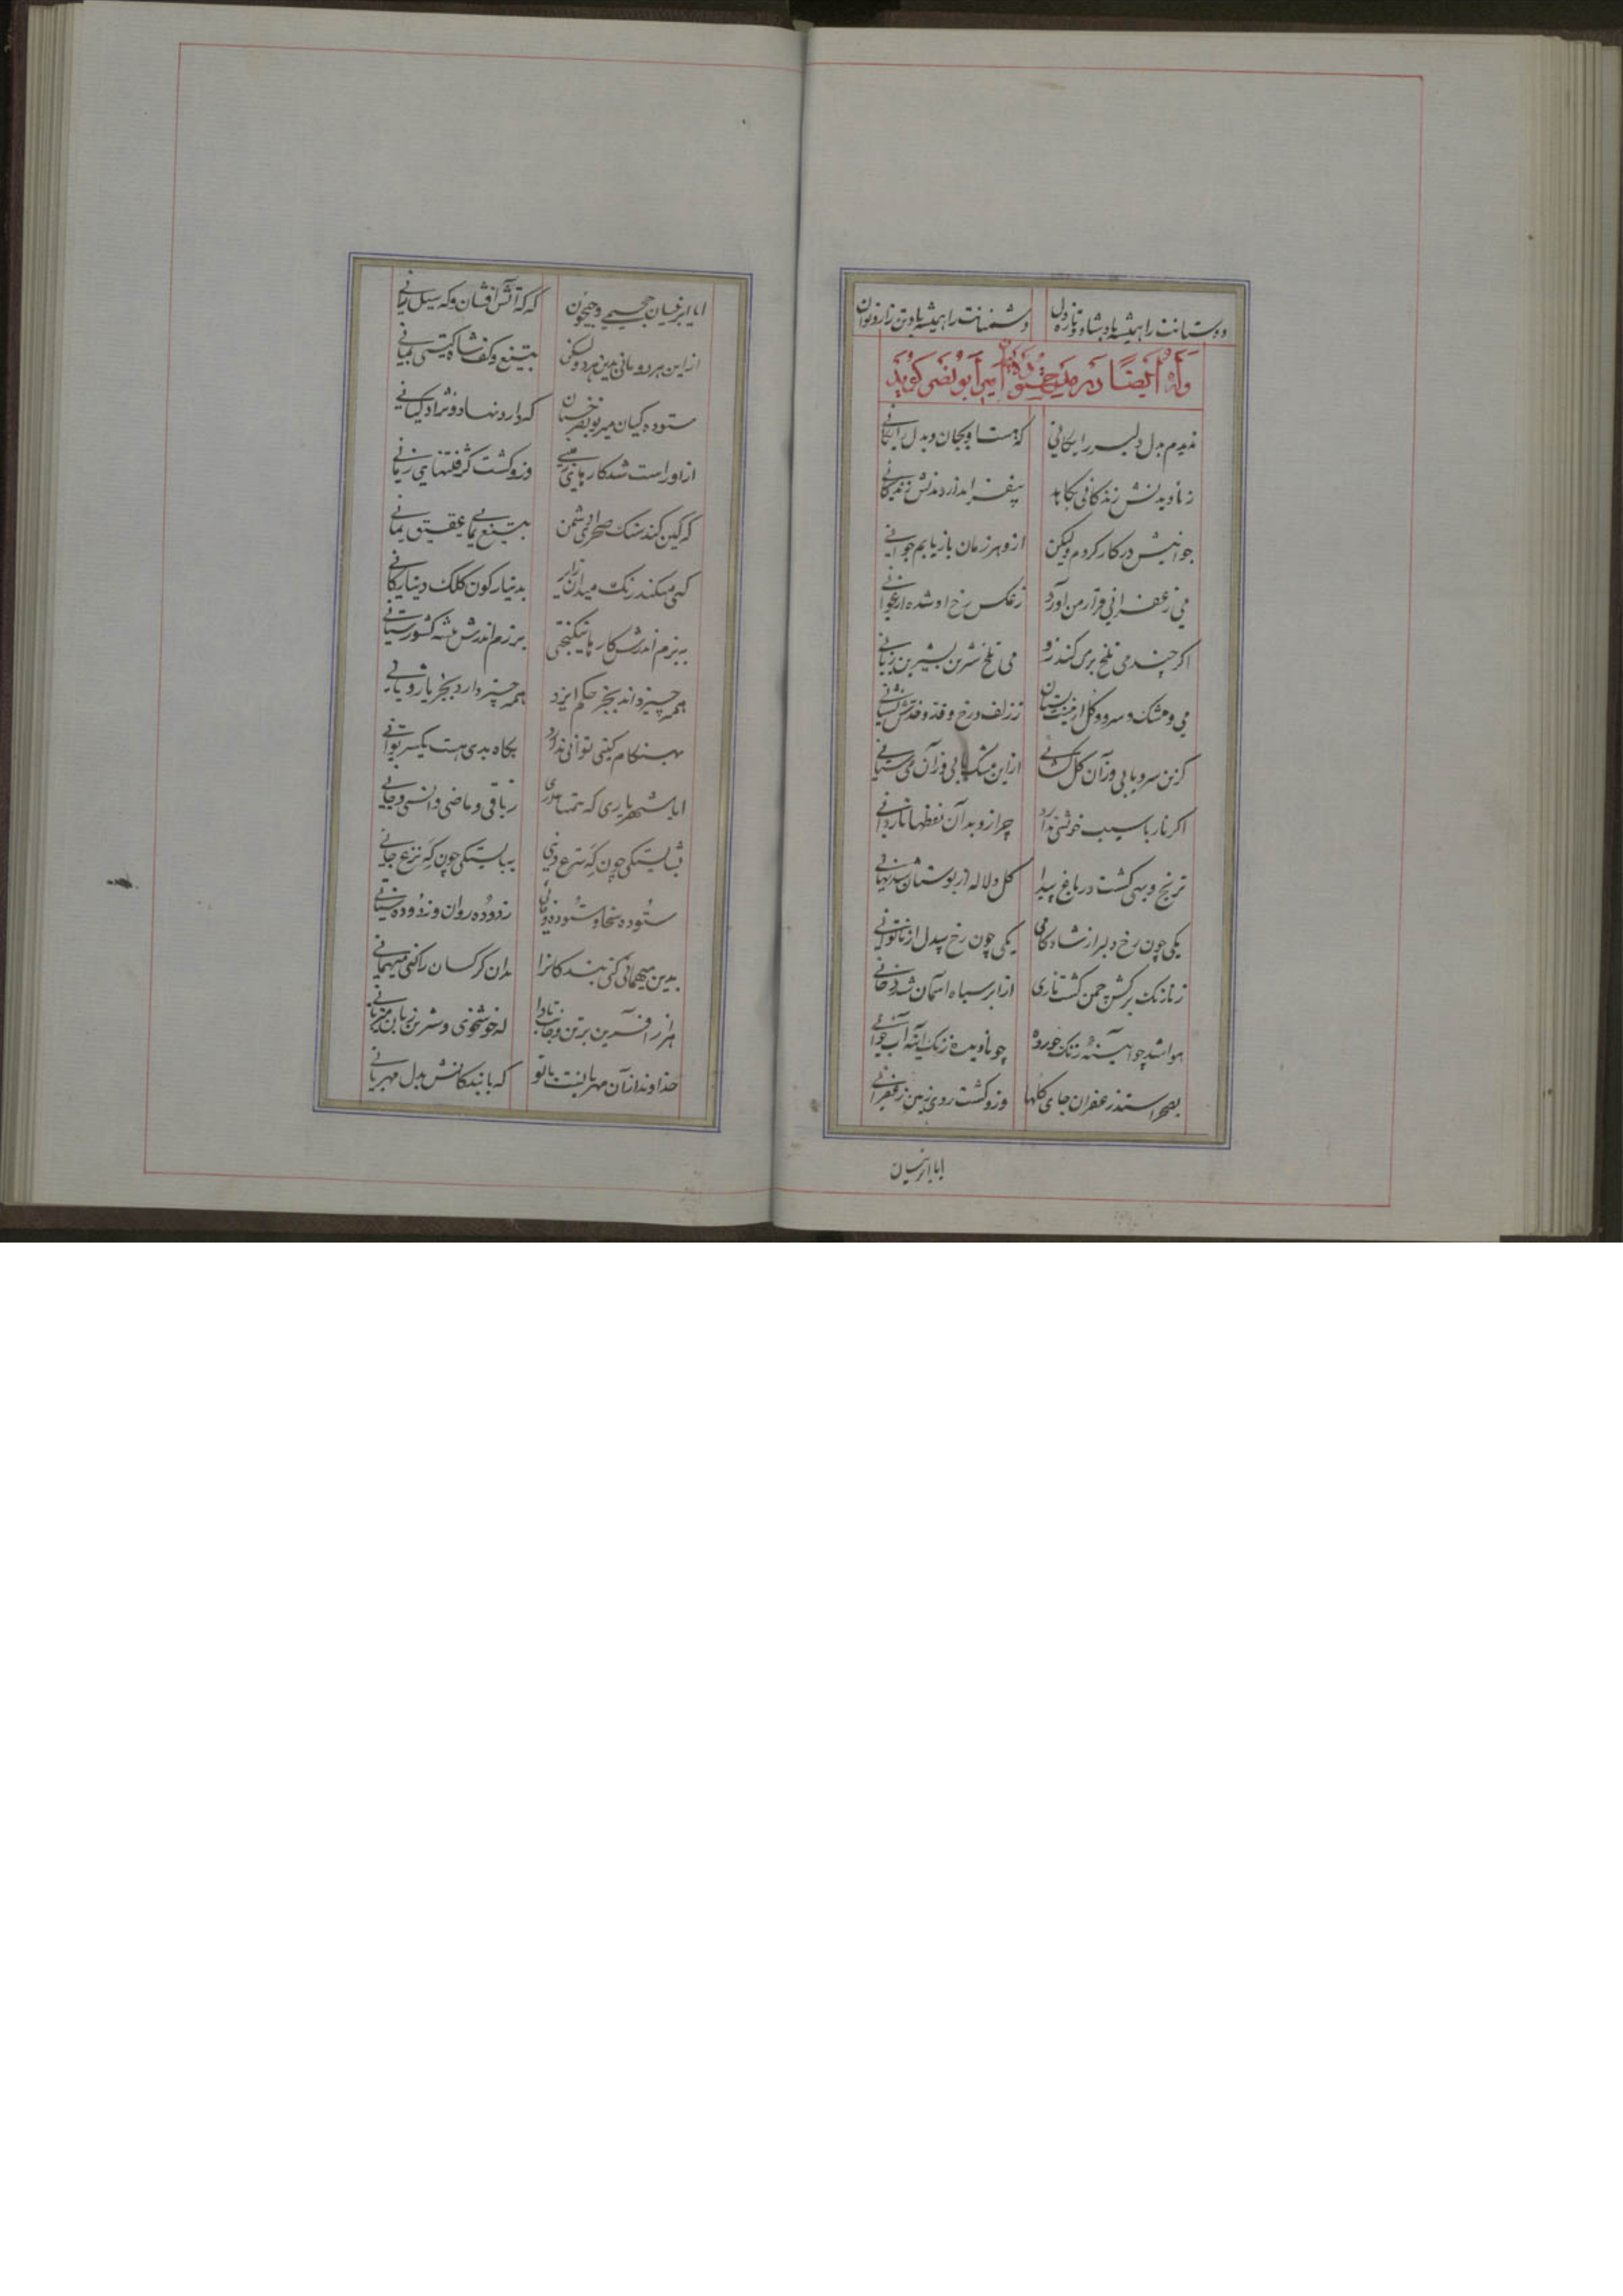 دوستانت را همیشه باد شاد و تازه دل دشمنانت را همیشه باد تن زار و نوان
وله ایضا در مدیح امیر ابو نصر گوید
ندیدم بدل دلبر رایکانی که هست او بجان و بدل رایکانی
زنادیدنش زندکانی بکاهد بیفزاید از دیدنش زندکانی
جوانیش در کار کردم ولیکن ازو هر زمان باز یابم جوانی
می زعفرانی فراز من آورد ز عکس رخ او شده ارغوانی
اکر چند می تلخ بری کند زو می تلخ شیرین بشیرین زبانی
می و مشک و سرو و کل از بوستان ز زلف و رخ و قد و خدش نشانی
کزین سرو یابی وزآن کل ستانی از این مشک یابی وزآن می ستانی
اکر نار با سیب خوشی ندارد چرا زو بدآن نقطها ناردانی
ترنج و بهی کشت در باغ پیدا کل و لاله در بوستان شد نهانی
یکی چون رخ دلبر از شادکامی یکی چون رخ بیدل از ناتوانی
زنارنک برکش چمن کشت ناری از ابر سیاه آسمان شد دخانی
هوا شد چو آیینه زنک خورده چو نادیده زنک آینه آب خوانی
بصحرا ستد زعفران جای کلها وزو کشت روی زمین زعفرانی
ایا ابر نیسان
ایا ابر نیسان جحیمی و جیحون که که آتش افشان و که سیل رانی
از این هر دو مانی بدین هر دو لیکن بتیغ و کف شاه کیتی نمانی
ستوده کیان میر بونصر که دارد نهاد و نژاد کیانی
از او راست شد کارهای زمینی وزو کشت کم فتنهای زمانی
که کین کند سنک صحرای دشمن بتیغ یمانی عقیق یمانی
کهی میکند رنک میدان بدینار کون کلک دینارکانی
به بزم اندرش کارها نیکبختی برزم اندرش پیشه کشورستانی
همه چیز داند بجز حکم ایزد همه چیز دارد بجز یار و ثانی
بهنکام نیکی توانی ندارد بکاه بدی هست یکسر توانی
ایا شهریاری که همتا نداری ز باقی و ماضی و انسی و جانی
بشایستکی چون که شرع دینی ببایستکی چون که نزع جانی
ستوده سخا و ستوده وفائی زدوده روان و زدوده سنانی
بدین میهمانی کنی بندکانرا بدان کرکسان را کنی میهمانی
هزار آفرین بر تن و جانت بادا که خوشخوی و شیرین زبان میزبانی
خداوند از آن مهربانست با تو که با بندکانش بدل مهربانی